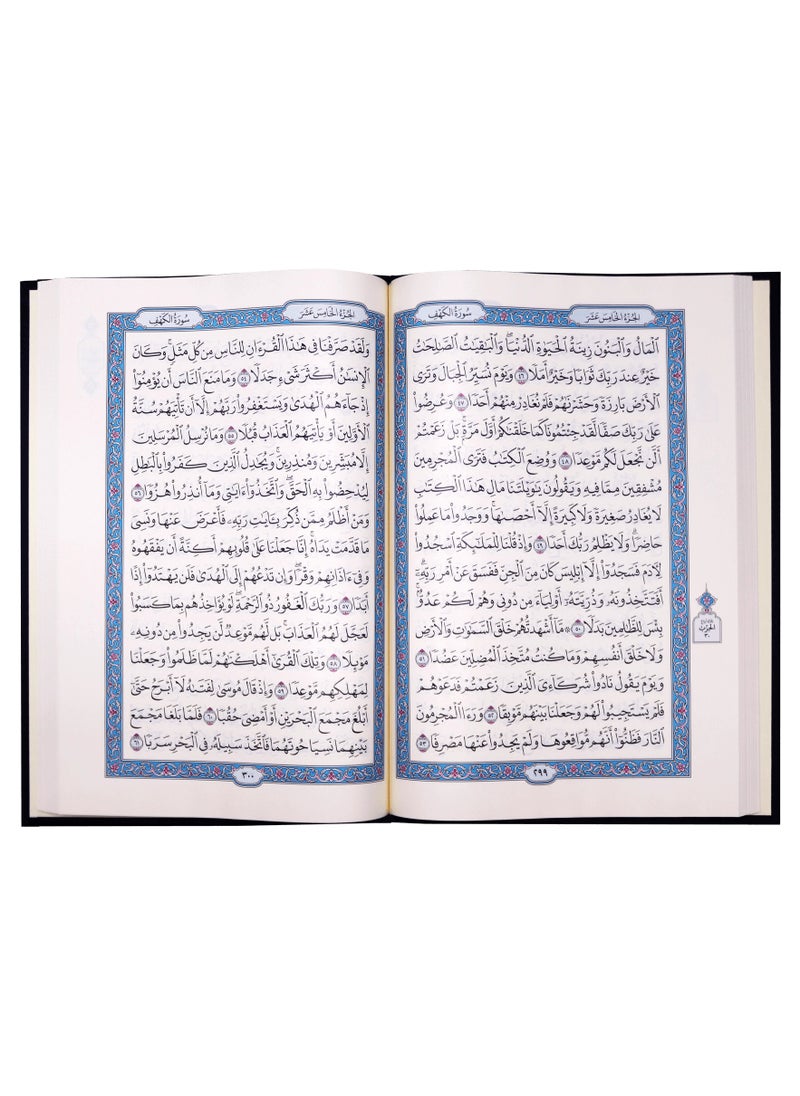 الجُزْءُ الخَامِسَ عَشَرَ
سُورَةُ الكَهْفِ
ٱلْمَالُ وَٱلْبَنُونَ زِينَةُ ٱلْحَيَوٰةِ ٱلدُّنْيَا ۖ وَٱلْبَٰقِيَٰتُ ٱلصَّٰلِحَٰتُ
خَيْرٌ عِندَ رَبِّكَ ثَوَابًا وَخَيْرٌ أَمَلًا ٤٦ وَيَوْمَ نُسَيِّرُ ٱلْجِبَالَ وَتَرَى
ٱلْأَرْضَ بَارِزَةً وَحَشَرْنَٰهُمْ فَلَمْ نُغَادِرْ مِنْهُمْ أَحَدًا ٤٧ وَعُرِضُوا۟
عَلَىٰ رَبِّكَ صَفًّا لَّقَدْ جِئْتُمُونَا كَمَا خَلَقْنَٰكُمْ أَوَّلَ مَرَّةٍۭ ۚ بَلْ زَعَمْتُمْ
أَلَّن نَّجْعَلَ لَكُم مَّوْعِدًا ٤٨ وَوُضِعَ ٱلْكِتَٰبُ فَتَرَى ٱلْمُجْرِمِينَ
مُشْفِقِينَ مِمَّا فِيهِ وَيَقُولُونَ يَٰوَيْلَتَنَا مَالِ هَٰذَا ٱلْكِتَٰبِ
لَا يُغَادِرُ صَغِيرَةً وَلَا كَبِيرَةً إِلَّآ أَحْصَىٰهَا ۚ وَوَجَدُوا۟ مَا عَمِلُوا۟
حَاضِرًا ۗ وَلَا يَظْلِمُ رَبُّكَ أَحَدًا ٤٩ وَإِذْ قُلْنَا لِلْمَلَٰٓئِكَةِ ٱسْجُدُوا۟
لِـَٔادَمَ فَسَجَدُوٓا۟ إِلَّآ إِبْلِيسَ كَانَ مِنَ ٱلْجِنِّ فَفَسَقَ عَنْ أَمْرِ رَبِّهِۦٓ ۗ
أَفَتَتَّخِذُونَهُۥ وَذُرِّيَّتَهُۥٓ أَوْلِيَآءَ مِن دُونِى وَهُمْ لَكُمْ عَدُوٌّۢ ۚ
بِئْسَ لِلظَّٰلِمِينَ بَدَلًا ٥٠ ۞ مَّآ أَشْهَدتُّهُمْ خَلْقَ ٱلسَّمَٰوَٰتِ وَٱلْأَرْضِ
وَلَا خَلْقَ أَنفُسِهِمْ وَمَا كُنتُ مُتَّخِذَ ٱلْمُضِلِّينَ عَضُدًا ٥١
وَيَوْمَ يَقُولُ نَادُوا۟ شُرَكَآءِىَ ٱلَّذِينَ زَعَمْتُمْ فَدَعَوْهُمْ
فَلَمْ يَسْتَجِيبُوا۟ لَهُمْ وَجَعَلْنَا بَيْنَهُم مَّوْبِقًا ٥٢ وَرَءَا ٱلْمُجْرِمُونَ
ٱلنَّارَ فَظَنُّوٓا۟ أَنَّهُم مُّوَاقِعُوهَا وَلَمْ يَجِدُوا۟ عَنْهَا مَصْرِفًا ٥٣
الحِزْبُ
٣٠
٢٩٩
الجُزْءُ الخَامِسَ عَشَرَ
سُورَةُ الكَهْفِ
وَلَقَدْ صَرَّفْنَا فِى هَٰذَا ٱلْقُرْءَانِ لِلنَّاسِ مِن كُلِّ مَثَلٍ ۚ وَكَانَ
ٱلْإِنسَٰنُ أَكْثَرَ شَىْءٍ جَدَلًا ٥٤ وَمَا مَنَعَ ٱلنَّاسَ أَن يُؤْمِنُوٓا۟
إِذْ جَآءَهُمُ ٱلْهُدَىٰ وَيَسْتَغْفِرُوا۟ رَبَّهُمْ إِلَّآ أَن تَأْتِيَهُمْ سُنَّةُ
ٱلْأَوَّلِينَ أَوْ يَأْتِيَهُمُ ٱلْعَذَابُ قُبُلًا ٥٥ وَمَا نُرْسِلُ ٱلْمُرْسَلِينَ
إِلَّا مُبَشِّرِينَ وَمُنذِرِينَ ۚ وَيُجَٰدِلُ ٱلَّذِينَ كَفَرُوا۟ بِٱلْبَٰطِلِ
لِيُدْحِضُوا۟ بِهِ ٱلْحَقَّ ۖ وَٱتَّخَذُوٓا۟ ءَايَٰتِى وَمَآ أُنذِرُوا۟ هُزُوًا ٥٦
وَمَنْ أَظْلَمُ مِمَّن ذُكِّرَ بِـَٔايَٰتِ رَبِّهِۦ فَأَعْرَضَ عَنْهَا وَنَسِىَ
مَا قَدَّمَتْ يَدَاهُ ۚ إِنَّا جَعَلْنَا عَلَىٰ قُلُوبِهِمْ أَكِنَّةً أَن يَفْقَهُوهُ
وَفِىٓ ءَاذَانِهِمْ وَقْرًا ۖ وَإِن تَدْعُهُمْ إِلَى ٱلْهُدَىٰ فَلَن يَهْتَدُوٓا۟ إِذًا
أَبَدًا ٥٧ وَرَبُّكَ ٱلْغَفُورُ ذُو ٱلرَّحْمَةِ ۖ لَوْ يُؤَاخِذُهُم بِمَا كَسَبُوا۟
لَعَجَّلَ لَهُمُ ٱلْعَذَابَ ۚ بَل لَّهُم مَّوْعِدٌ لَّن يَجِدُوا۟ مِن دُونِهِۦ
مَوْئِلًا ٥٨ وَتِلْكَ ٱلْقُرَىٰٓ أَهْلَكْنَٰهُمْ لَمَّا ظَلَمُوا۟ وَجَعَلْنَا
لِمَهْلِكِهِم مَّوْعِدًا ٥٩ وَإِذْ قَالَ مُوسَىٰ لِفَتَىٰهُ لَآ أَبْرَحُ حَتَّىٰٓ
أَبْلُغَ مَجْمَعَ ٱلْبَحْرَيْنِ أَوْ أَمْضِىَ حُقُبًا ٦٠ فَلَمَّا بَلَغَا مَجْمَعَ
بَيْنِهِمَا نَسِيَا حُوتَهُمَا فَٱتَّخَذَ سَبِيلَهُۥ فِى ٱلْبَحْرِ سَرَبًا ٦١
٣٠٠